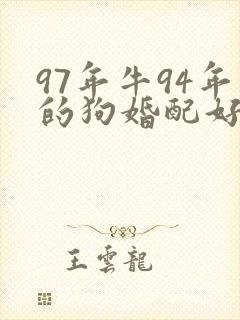 97年牛94年
的狗婚配好
王雲龍